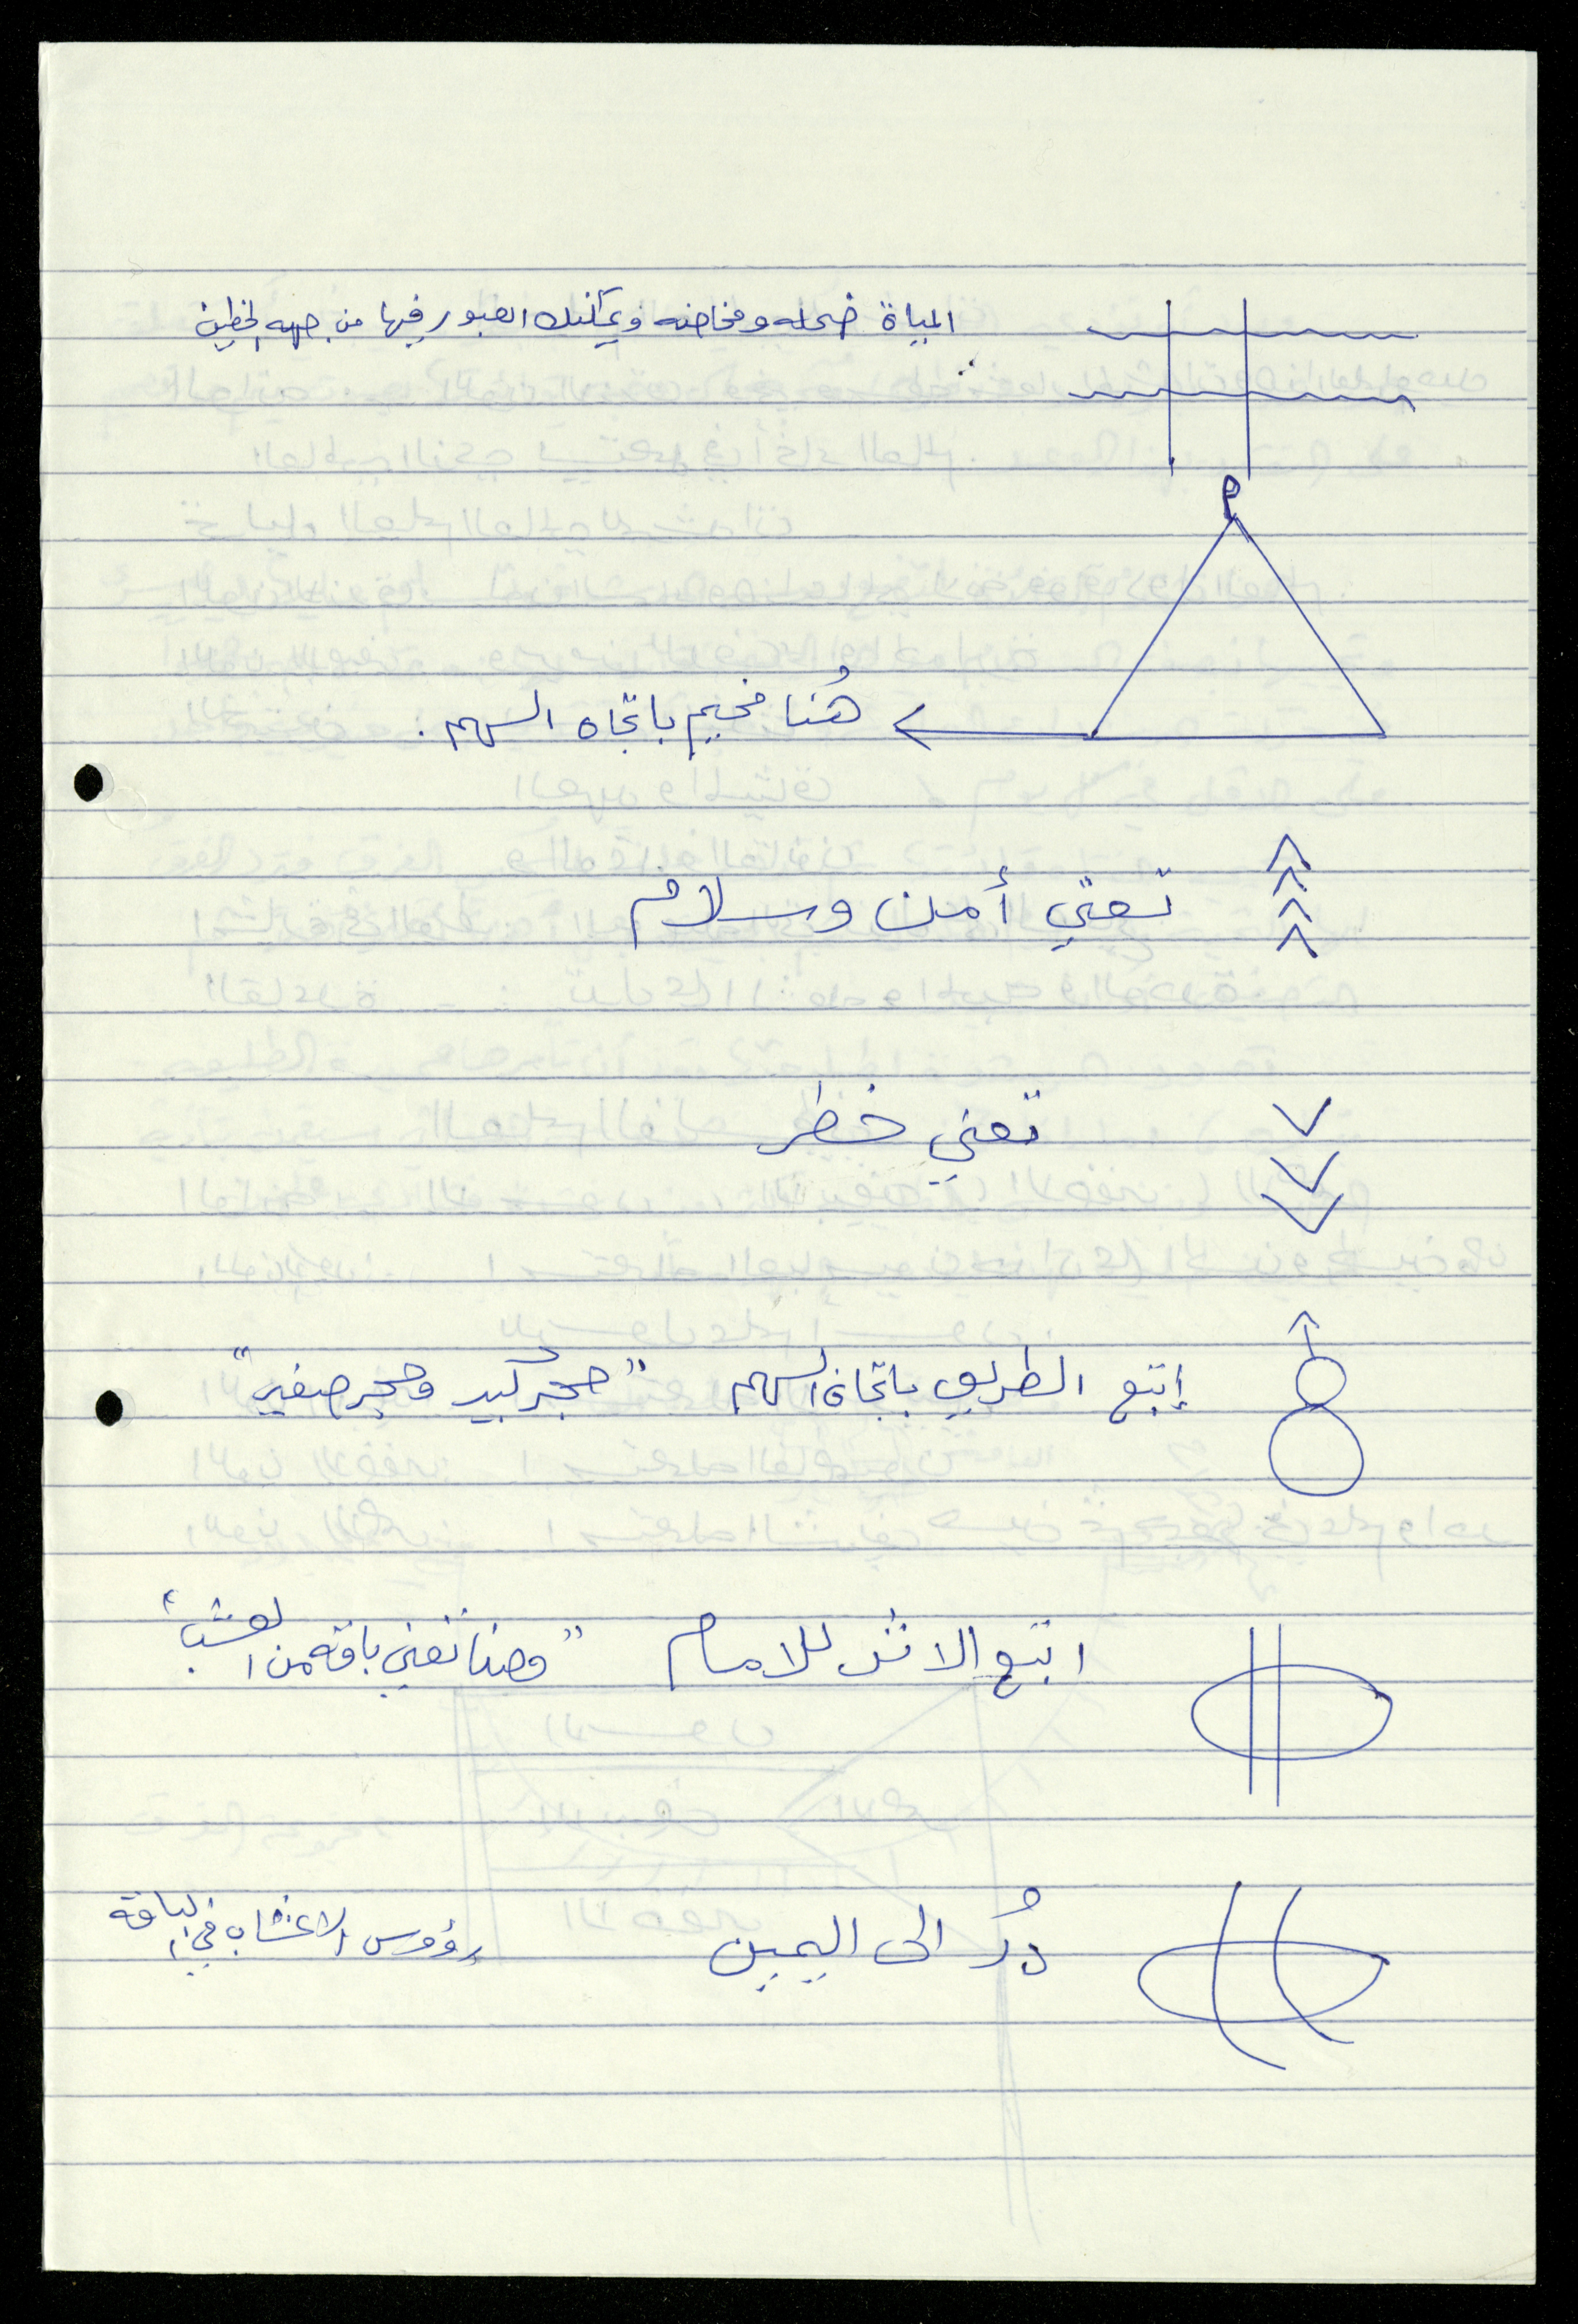 المياة ضحله ومخاضه ويمكنك العبور فيها من جهه الخطين
هُنا مخيم باتجاه السهم .
تعني أمن وسلام
تعني خطر
إتبع الطريق باتجاة السهم "حجر كبير وحجر صغير"
اتبع الاثر للامام "وهنا تعني باقه من العشب"
دُر الى اليمين رؤوس الاعشاب في الباقه